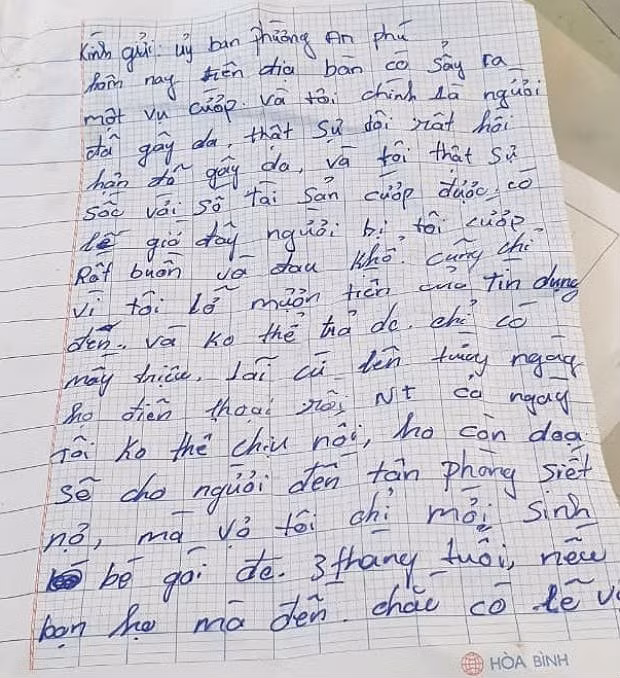 Kính gửi: uỷ ban Phường An phú
hôm nay trên địa bàn có sảy ra
một vụ cướp. và tôi chính là người
đã gây da, thật sự tôi rất hối
hận đã gây da, và tôi thật sự
sốc với số tài sản cướp được, có
lẽ giờ đây người bị tôi cướp
Rất buồn và đau khổ. cũng chỉ
vì tôi lỡ mượn tiền của Tín dụng
đen. và ko thể trả dc. chỉ có
mấy triệu, lãi cứ lên từng ngày
họ điện thoại rồi Nt cả ngày
Tôi ko thể chịu nổi, họ còn doạ
sẽ cho người đến tận phòng siết
nợ, mà vợ tôi chỉ mới sinh
bé gái dc. 3 tháng tuổi, nếu
bọn họ mà đến. chắc có lẽ
HÒA BÌNH